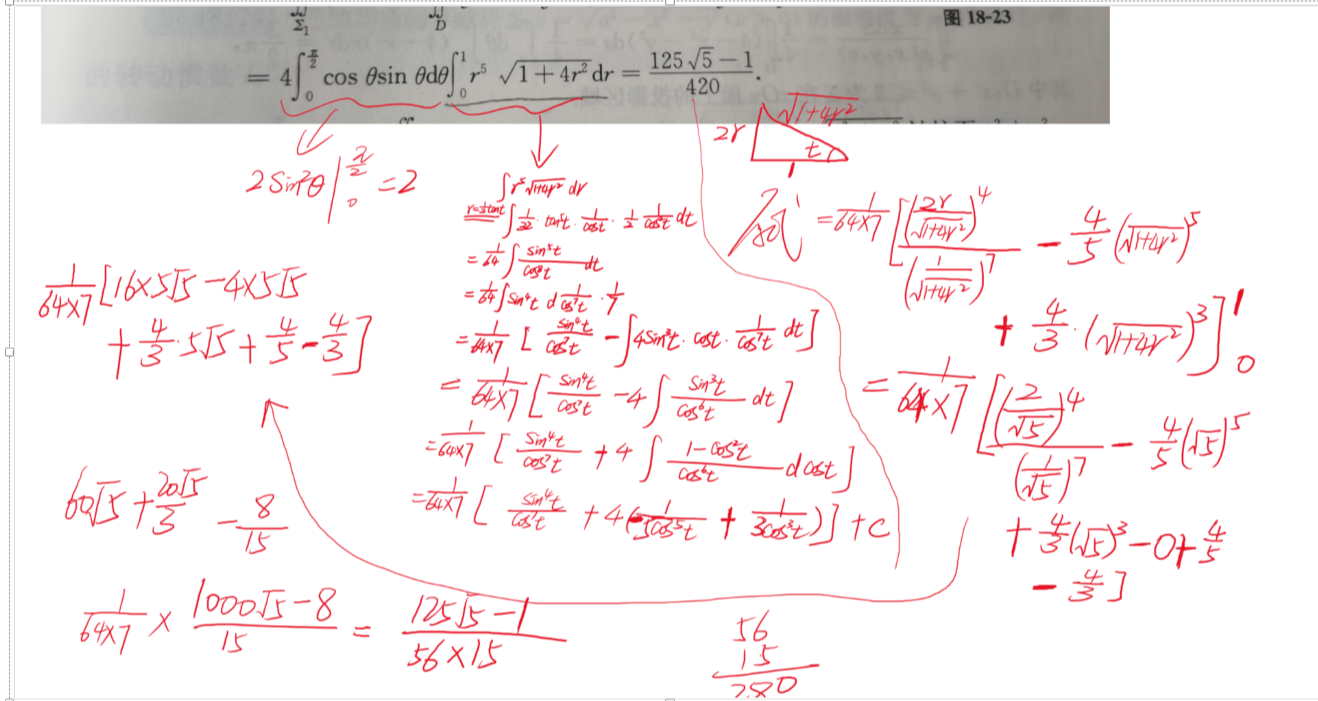 图 18-23
∬ ∬
Σ₁ D
= 4∫₀^{π/2} cos θsin θdθ∫₀¹ r⁵ √(1+4r²) dr = (125√5 − 1)/420.
2sin²θ |₀^{π/2} = 2
∫r⁵√(1+4r²) dr
r=½tant ∫ 1/32 · tan⁵t · 1/cost · ½ 1/cos²t dt
= 1/64 ∫ sin⁵t/cos⁸t dt
= 1/64 ∫sin⁴t d 1/cos⁷t · 1/7
= 1/(64×7) [ sin⁴t/cos⁷t − ∫4sin³t · cost · 1/cos⁷t dt ]
= 1/(64×7) [ sin⁴t/cos⁷t − 4∫ sin³t/cos⁶t dt ]
= 1/(64×7) [ sin⁴t/cos⁷t + 4∫ (1−cos²t)/cos⁶t dcost ]
= 1/(64×7) [ sin⁴t/cos⁷t + 4(−1/(5cos⁵t) + 1/(3cos³t)) ] + c
2r
√(1+4r²)
t
1
原式 = 1/(64×7) [ (2r/√(1+4r²))⁴/(1/√(1+4r²))⁷ − 4/5 (√(1+4r²))⁵
+ 4/3 · (√(1+4r²))³ ]₀¹
= 1/(64×7) [ (2/√5)⁴/(1/√5)⁷ − 4/5 (√5)⁵
+ 4/3 (√5)³ − 0 + 4/5
− 4/3 ]
1/(64×7) [16×5√5 − 4×5√5
+ 4/3 · 5√5 + 4/5 − 4/3 ]
60√5 + 20√5/3 − 8/15
1/(64×7) × (1000√5 − 8)/15 = (125√5 − 1)/(56×15)
56
15
280